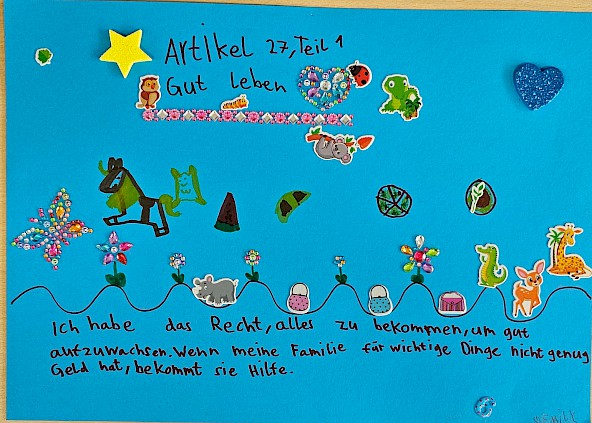 Artikel 27, Teil 1
Gut leben
Ich habe das Recht, alles zu bekommen, um gut
aufzuwachsen. Wenn meine Familie für wichtige Dinge nicht genug
Geld hat, bekommt sie Hilfe.